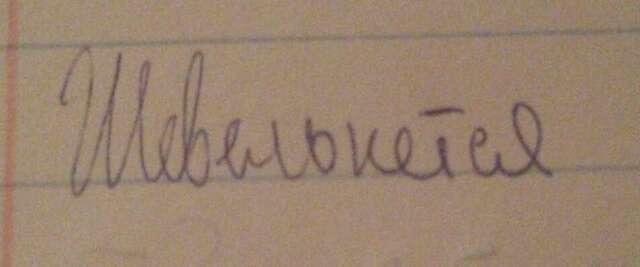 Шевельнется